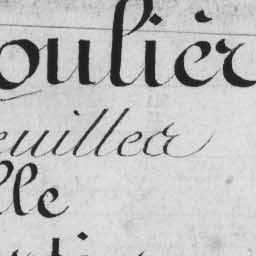 oulièr
euillea
lle